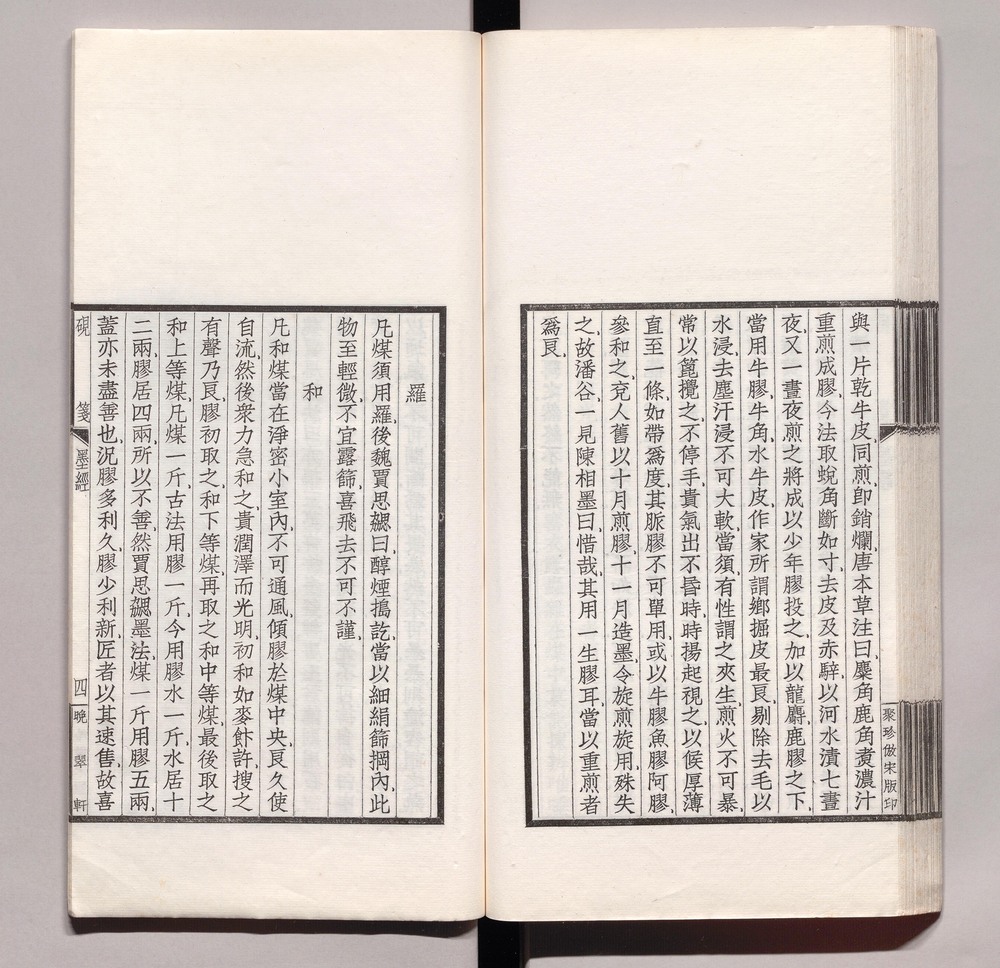 與一片乾牛皮同煎卽銷爛唐本草注曰麋角鹿角煑濃汁
重煎成膠今法取蛻角斷如寸去皮及赤騂以河水漬七晝
夜又一晝夜煎之將成以少年膠投之加以龍麝鹿膠之下
當用牛膠牛角水牛皮作家所謂鄉掘皮最良剔除去毛以
水浸去塵汙浸不可大軟當須有性謂之夾生煎火不可暴
常以篦攪之不停手貴氣出不昬時時揚起視之以候厚薄
直至一條如帶爲度其脈膠不可單用或以牛膠魚膠阿膠
參和之兗人舊以十月煎膠十一月造墨今旋煎旋用殊失
之故潘谷一見陳相墨曰惜哉其用一生膠耳當以重煎者
爲良
聚珍倣宋版印
羅
凡煤須用羅後魏賈思勰曰醇煙擣訖當以細絹篩堈內此
物至輕微不宜露篩喜飛去不可不謹
和
凡和煤當在淨密小室內不可通風傾膠於煤中央良久使
自流然後衆力急和之貴潤澤而光明初和如麥飰許搜之
有聲乃良膠初取之和下等煤再取之和中等煤最後取之
和上等煤凡煤一斤古法用膠一斤今用膠水一斤水居十
二兩膠居四兩所以不善然賈思勰墨法煤一斤用膠五兩
蓋亦未盡善也況膠多利久膠少利新匠者以其速售故喜
硯箋 墨經 四 晚翠軒